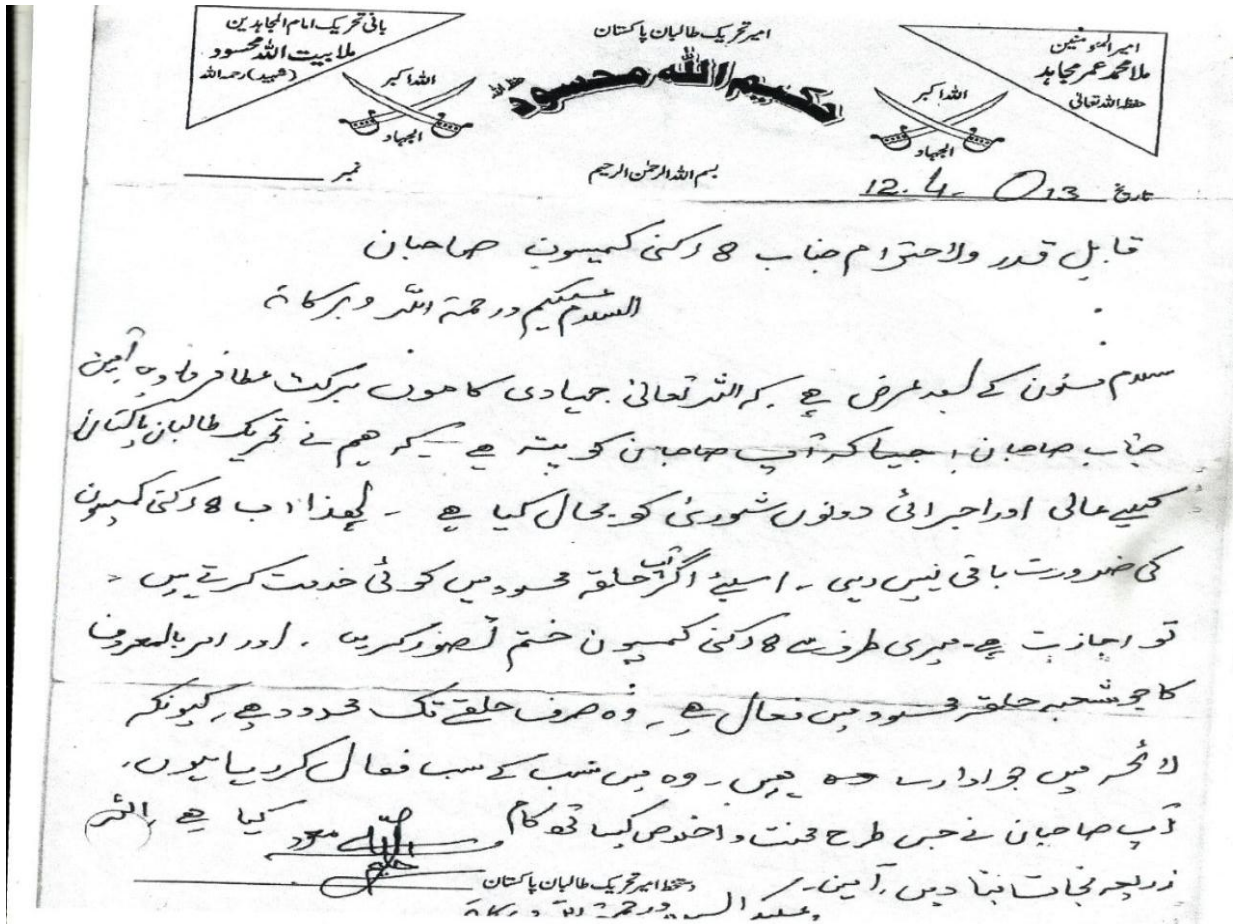 امیر المؤمنین
ملا محمد عمر مجاہد
حفظہ اللہ تعالیٰ
اللہ اکبر
الجہاد
امیر تحریک طالبان پاکستان
حکیم اللہ محسود
حفظہ اللہ
بانی تحریک امام المجاہدین
ملا بیت اللہ محسود
(شہید) رحمہ اللہ
اللہ اکبر
الجہاد
بسم اللہ الرحمٰن الرحیم
تاریخ 12.4.013
نمبر
قابل قدر ولاحترام جناب 8 رکنی کمیسون صاحبان
السلام علیکم ورحمۃ اللہ وبرکاۃ
سلام مسنون کے بعد عرض ہے کہ اللہ تعالیٰ جہادی کاموں برکت عطا فرماویں آمین
جناب صاحبان، جیسا کہ آپ صاحبان کو پتہ ہے کہ ھم نے تحریک طالبان پاکستان
کیلیے عالی اور اجرائی دونوں شوریٰ کو بحال کیا ہے ۔ لھذا اب 8 رکنی کمیسون
کی ضرورت باقی نہیں رہی ۔ اسلیے اگر آپ حلقہ محسود میں کوئی خدمت کرتے ہیں ،
تو اجازت ہے۔ میری طرف سے 8 رکنی کمیسون ختم تصور کریں ۔ اور امر بالمعروف
کا جو شعبہ حلقہ محسود میں فعال ہے ۔ وہ صرف حلقے تک محدود ہے، کیونکہ
لائحہ میں جو ادارے ہیں ۔ وہ میں سب کے سب فعال کر رہا ہوں۔
آپ صاحبان نے جس طرح محنت و اخلاص کیساتھ کام کیا ہے اللہ
ذریعہ نجات بنا دیں، آمین۔
دستخط امیر تحریک طالبان پاکستان
ورحمۃ اللہ وبرکاۃ